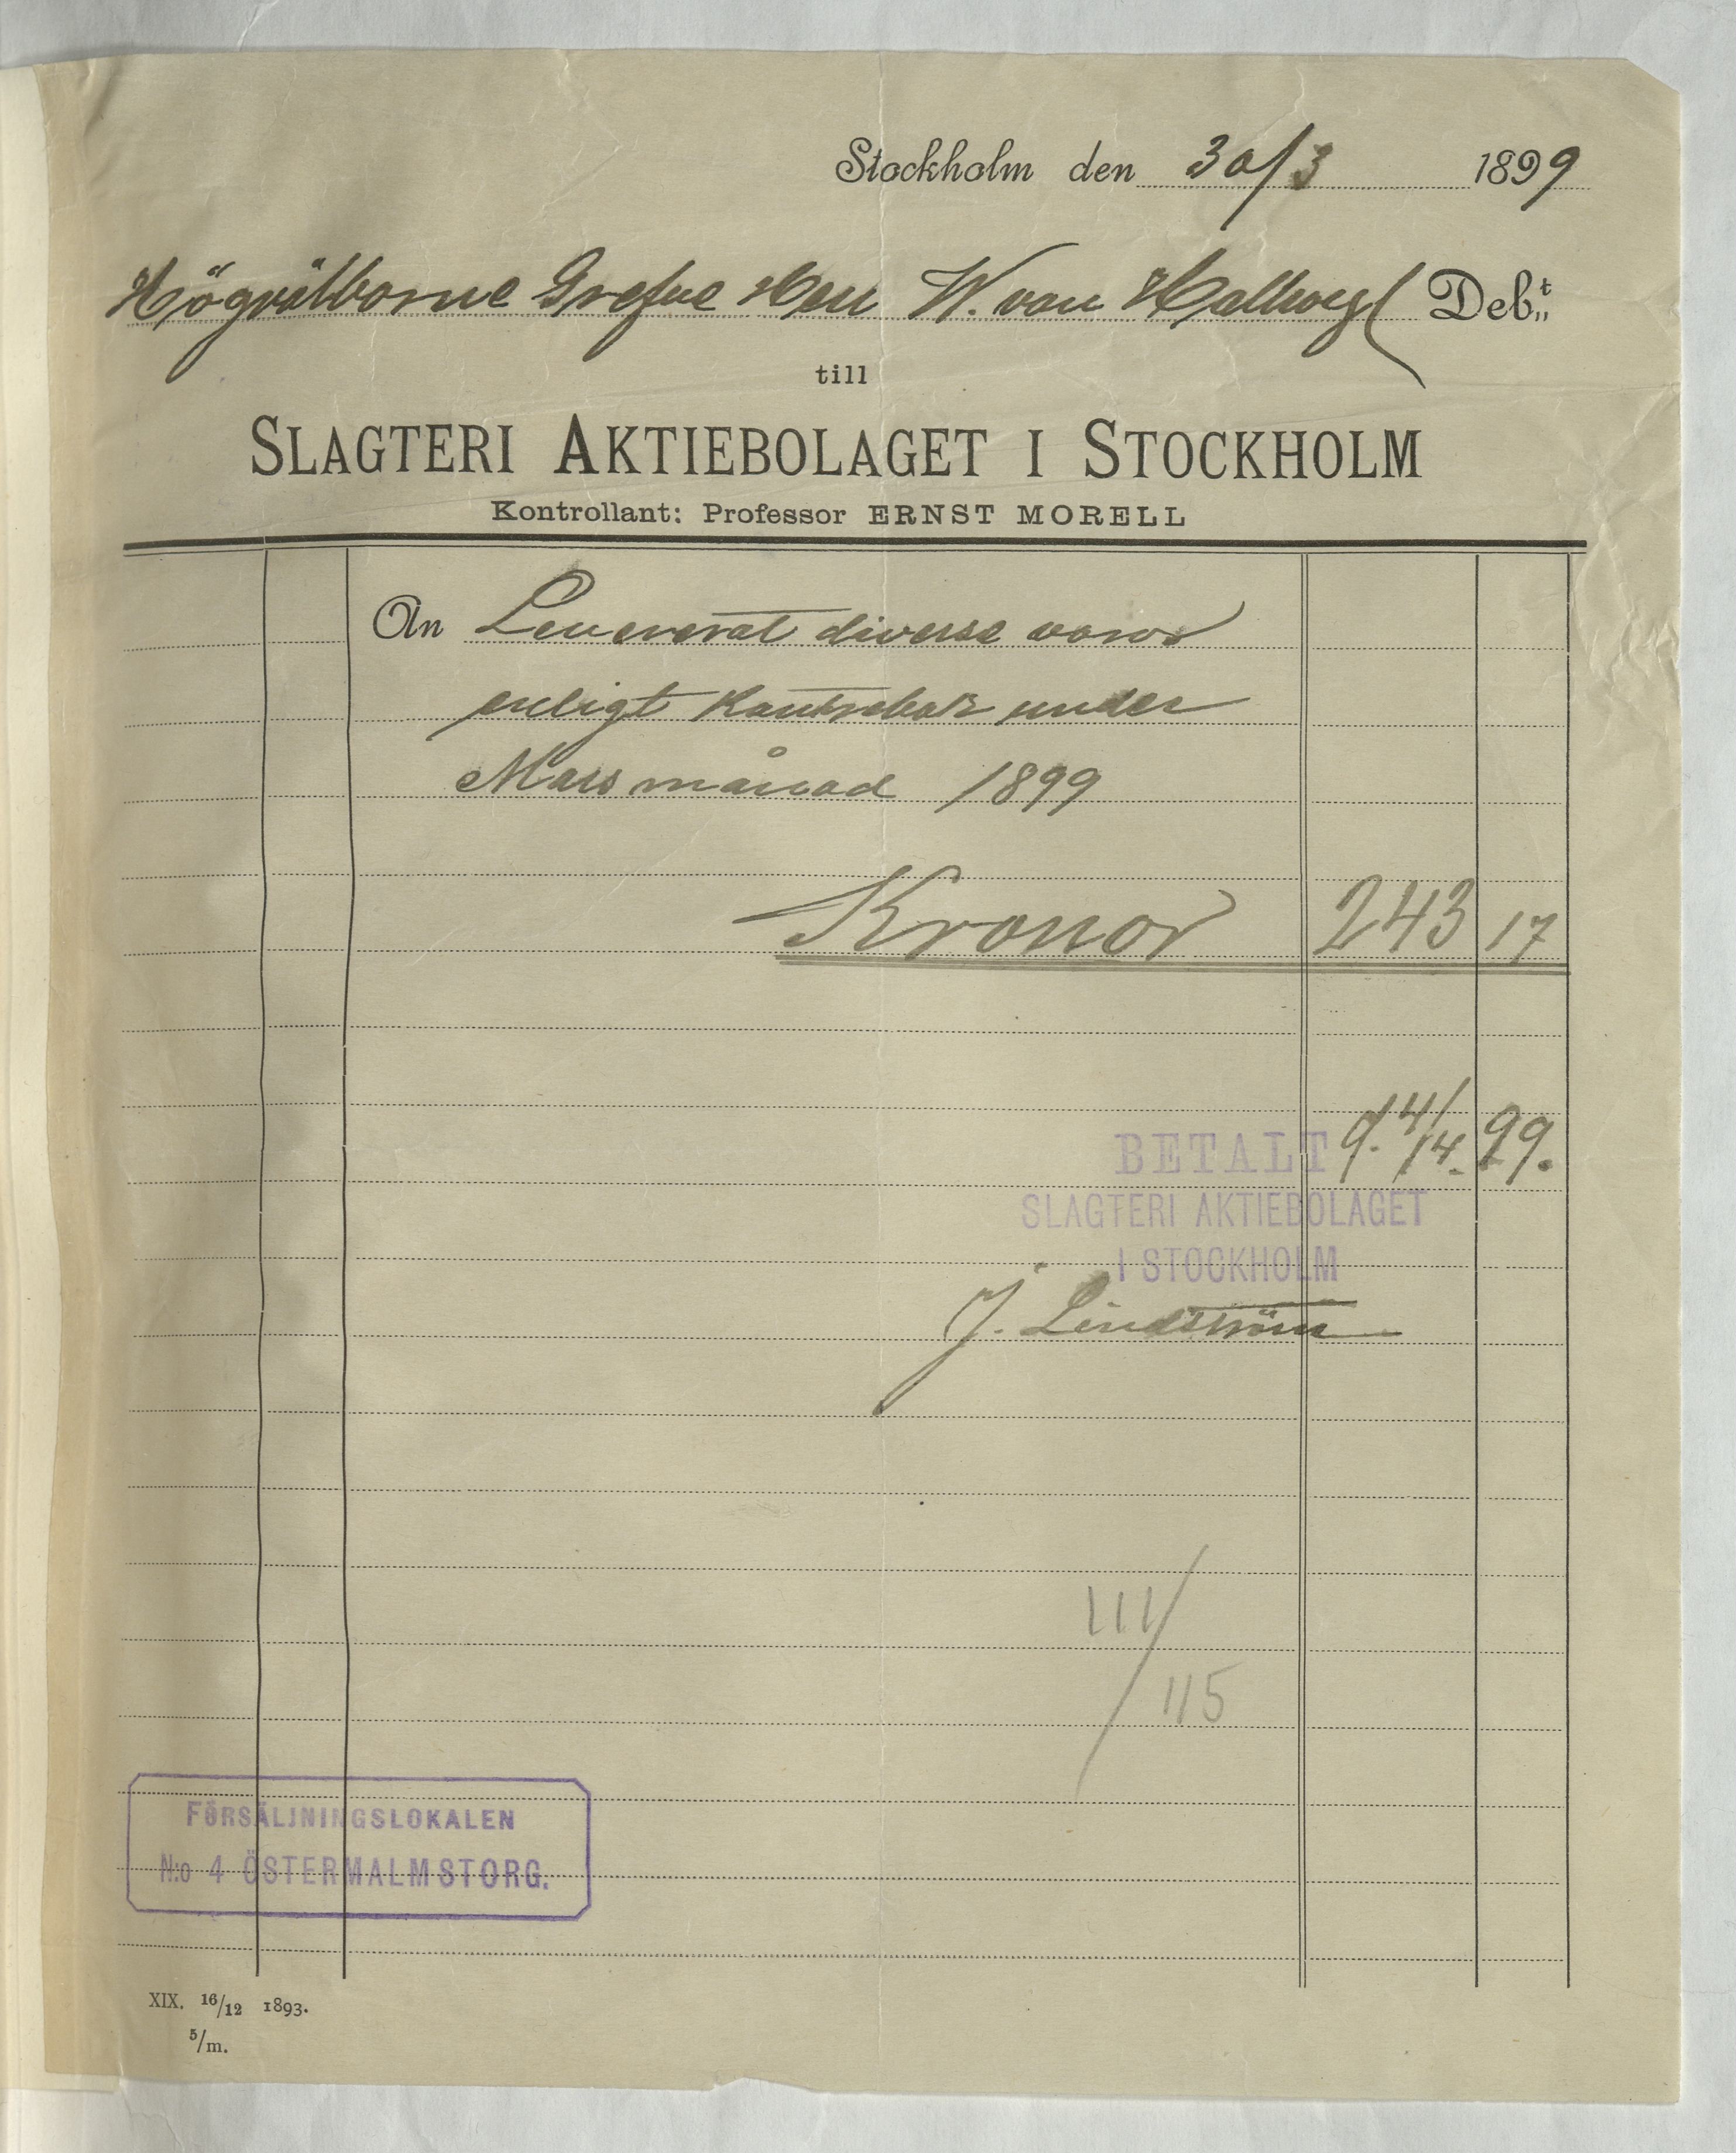 Stockholm den 30/3 1899
Högvälborne Grefve Herr W. von Hallwyl Deb.t
till
SLAGTERI AKTIEBOLAGET I STOCKHOLM
Kontrollant: Professor ERNST MORELL
An Levererat diverse varor
enligt Kontrabok under
Mars månad 1899
Kronor 243 17
BETALT d. 4/4. 99.
SLAGTERI AKTIEBOLAGET
I STOCKHOLM
J. Lindström
111/115
FÖRSÄLJNINGSLOKALEN
N:o 4 ÖSTERMALMSTORG.
XIX. 16/12 1893.
5/m.